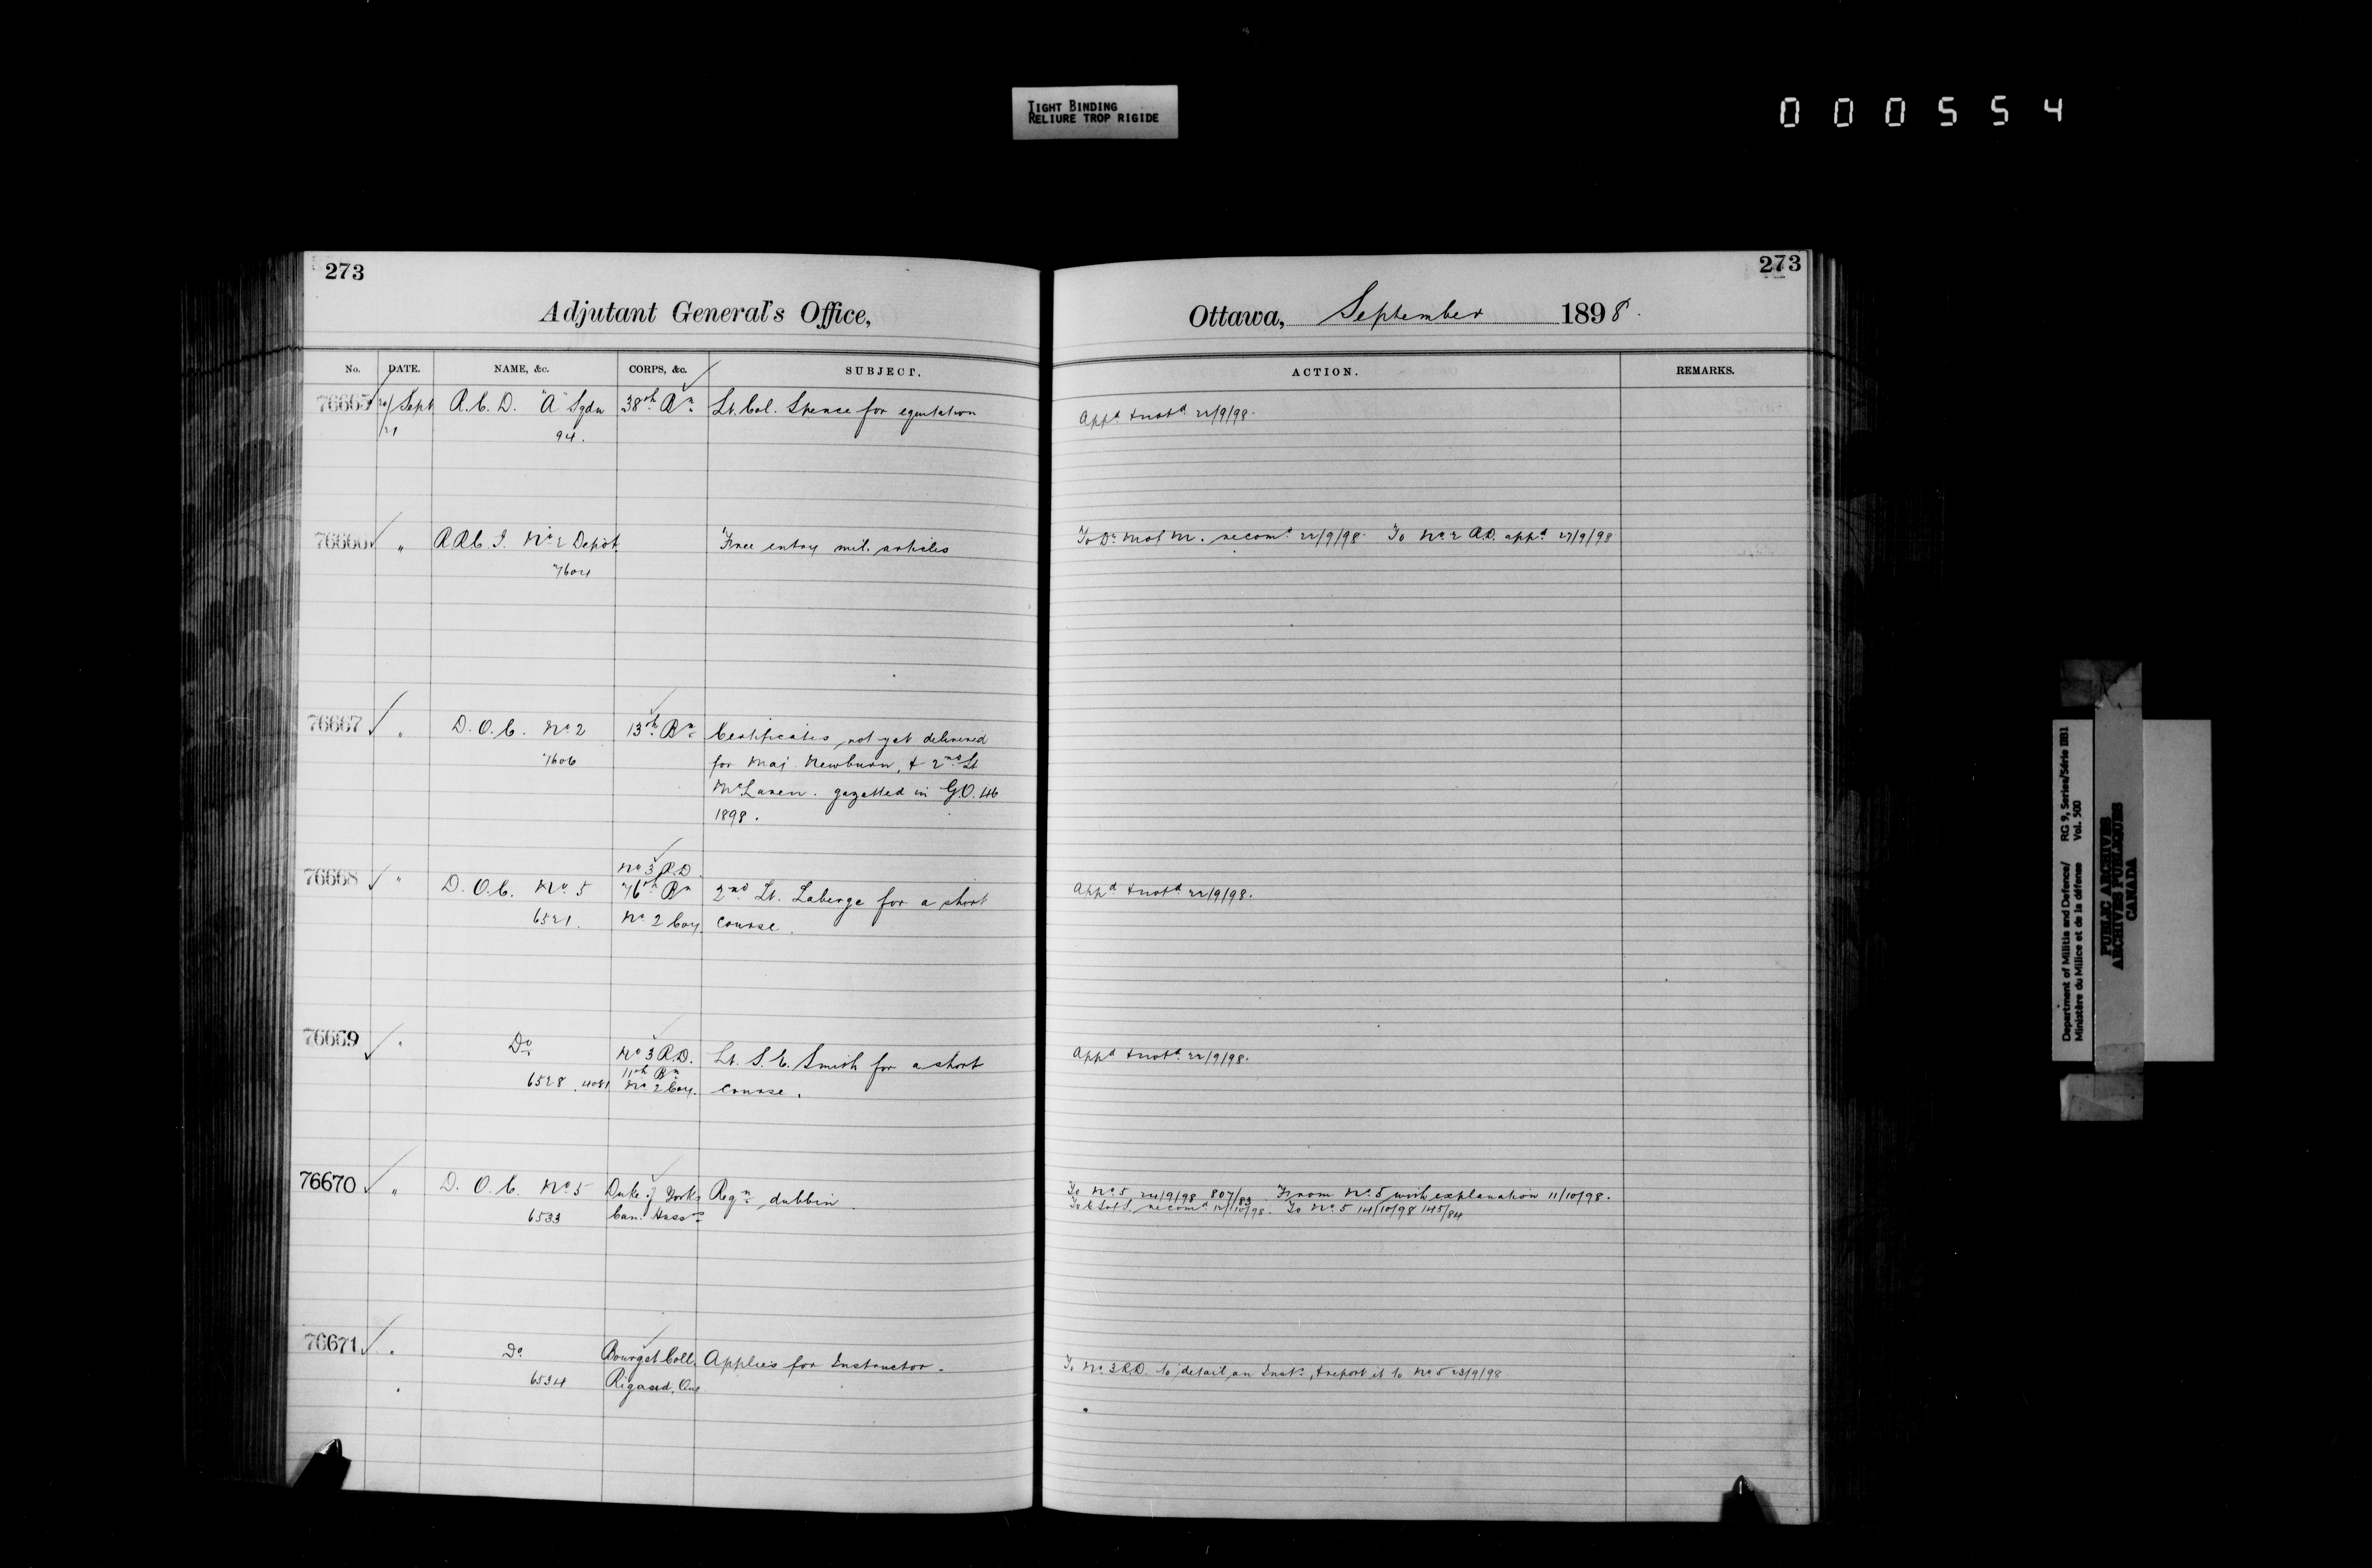 TIGHT BINDING
RELIURE TROP RIGIDE
000554
273
Adjutant General's Office,
No. DATE. NAME, &c. CORPS, &c. SUBJECT.
76665 20/Sept R.C.D. "A" Sqdn 38th Bn Lt. Col. Spence for equitation
/21 94.
76666 " R.R.C.I. No 2 Depôt Free entry mil. articles
7604
76667 " D.O.C. No 2 13th Bn Certificates not yet delivered
7606 for Maj. Newburn, & 2nd Lt
McLaren. gazetted in G.O. 46
1898.
No 3 R.D.
76668 " D.O.C. No 5 76th Bn 2nd Lt. Laberge for a short
6521. No 2 Coy. course.
76669 " Do No 3 R.D. Lt. S. E. Smith for a short
11th Bn
6528. 4081 No 2 Coy. course.
76670 " D.O.C. No 5 Duke of Yorks Regn dubbin.
6533 Can. Hussrs
76671 " Do Bourget Coll. Applies for Instructor.
6534 Rigaud, Que
273
Ottawa, September 1898.
ACTION. REMARKS.
Appd & notd 22/9/98.
To D. M of M. recomd 22/9/98. To No 2 R.D. appd 27/9/98
Appd & notd 22/9/98.
Appd & notd 22/9/98.
To No 5 24/9/98 807/83 From No 5 with explanation 11/10/98.
recomd 12/10/98. To No 5 14/10/98 145/84
To No 3 R.D. to detail an Instr, & report it to No 5 23/9/98
Department of Militia and Defence/ RG 9, Series/Série IIB1
Ministère du Milice et de la défense Vol. 500
PUBLIC ARCHIVES
ARCHIVES PUBLIQUES
CANADA